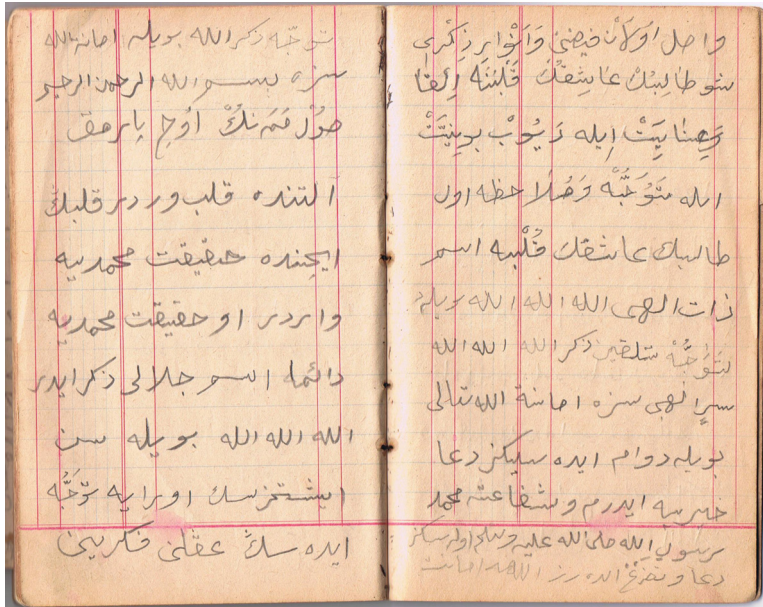 واصل اولان فيضنى وانوار ذكرى
شو طالبك عاشقك قلبنه القا
وعنايت ايله ديوب بو نيت
ايله توجه وملاحظه اول
طالبك عاشقك قلبنه اسم
ذات الهى الله الله الله بويله
توجه تلقين ذكر الله الله الله
سر الهى سزه امانة الله تعالى
بويله دوام ايده سيكز دعا
خيريه ايدرم وشفاعت محمد
رسول الله صلى الله عليه وسلم اوله سكز
دعا و ايده رز الله امانت
توجه ذكر الله بويله امانة الله
سزه بسم الله الرحمن الرحيم
صول ممه نك اوچ پارمق
آلتنده قلب وردر قلبك
ايچنده حقيقت محمديه
واردر او حقيقت محمديه
دائما اسم جلالى ذكر ايدر
الله الله الله بويله سن
ايشتخرسك اورايه توجه
ايده سك عقلنى فكرينى